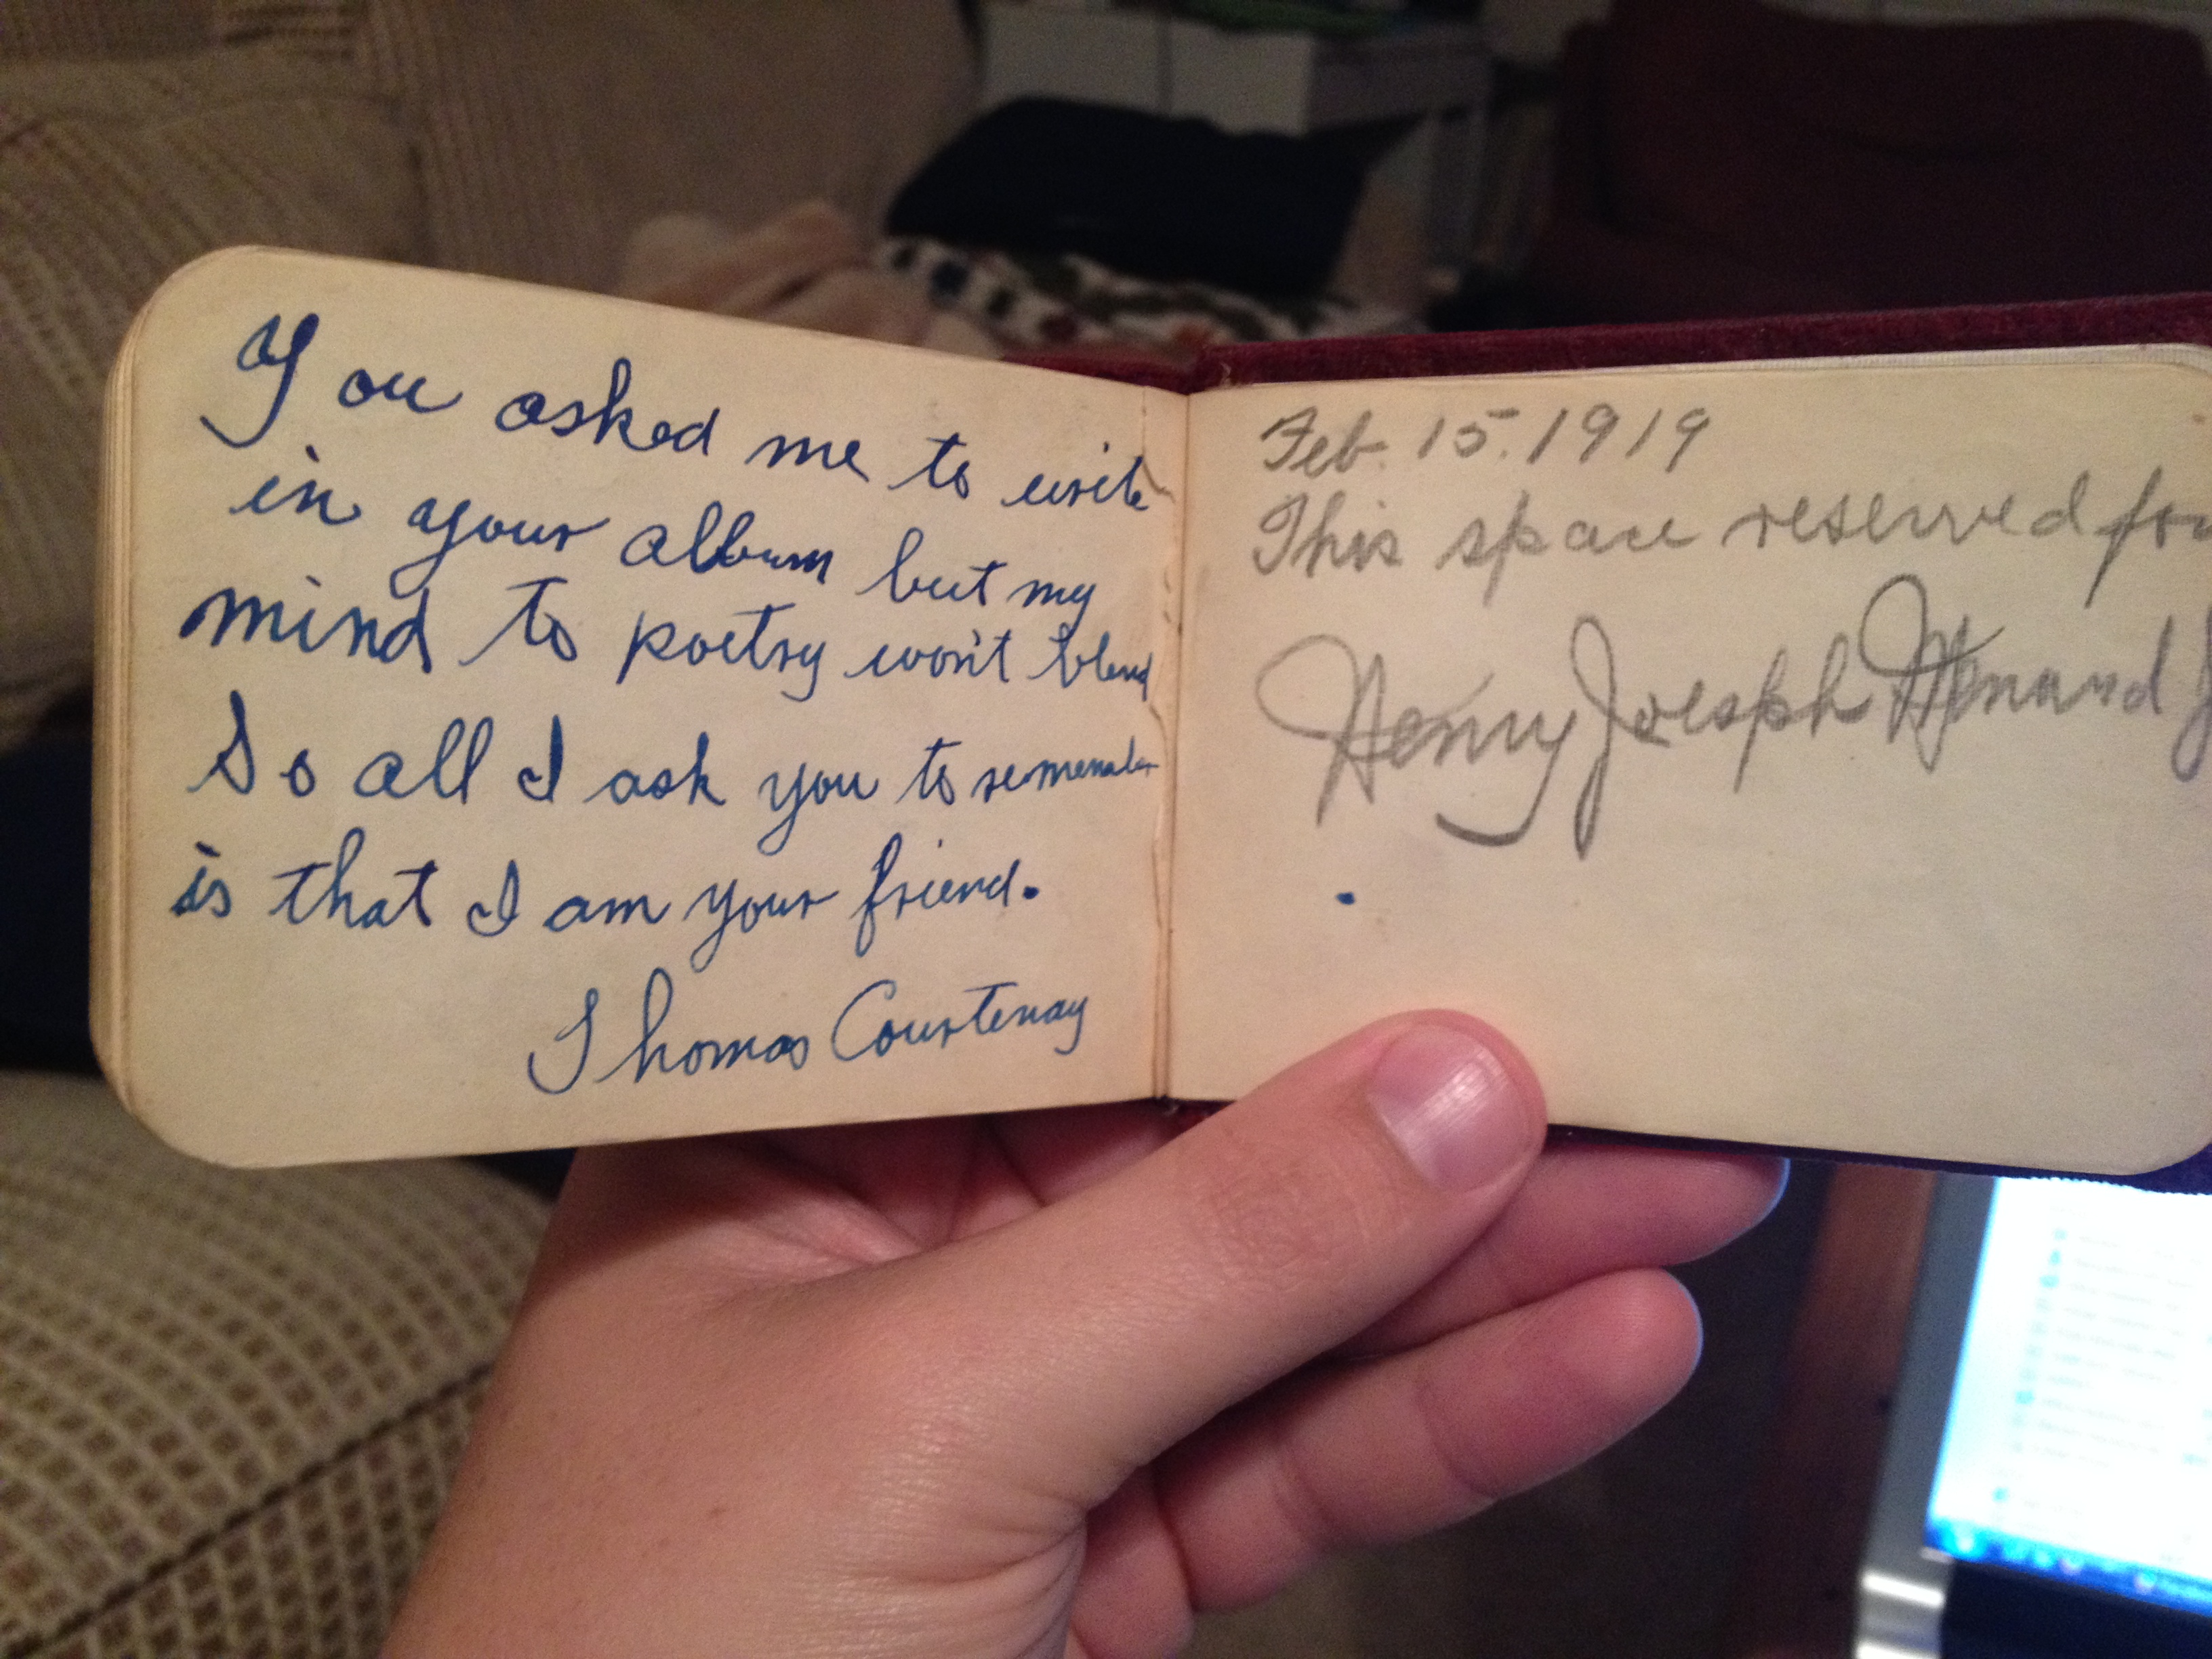 You asked me to write
in your album but my
mind to poetry won't blend
So all I ask you to remember
is that I am your friend.
Thomas Courtenay
Feb. 15. 1919
This space reserved for
Henry Joesph